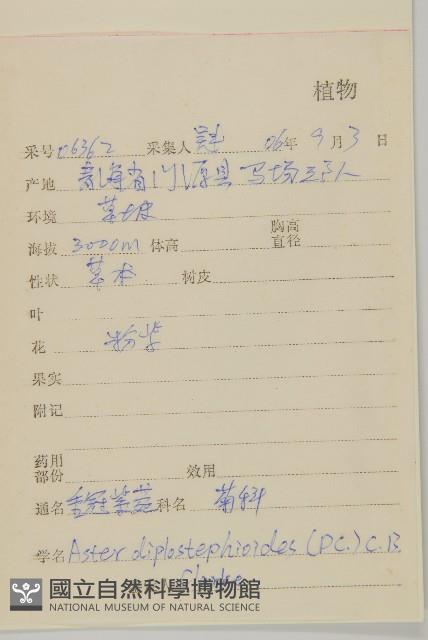 植物
采号 06362 采集人 06年 9月3日
产地 青海省门源县马场
环境 草坡
海拔 3000m 体高 胸高直径
性状 草本 树皮
叶
花 粉紫
果实
附记
药用部份 效用
通名 重冠紫菀 科名 菊科
学名 Aster diplostephioides (DC.) C.B.
Clarke
國立自然科學博物館
NATIONAL MUSEUM OF NATURAL SCIENCE